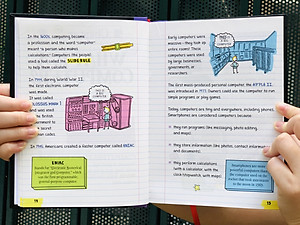 In the 1600s, computing became
a profession and the word "computer"
meant "a person who computes."
Computers (the people)
used a tool called the SLIDE RULE
to help them calculate.
In 1944, during World War II,
the first electronic computer
was made.
It was
called
COLOSSUS MARK 1
and was
used by
the British
government
to
secret
codes.
In 1946, Americans created a faster computer called ENIAC.
ENIAC
14
Early computers were
massive — they took up
entire rooms! These
computers were used
by large businesses,
governments, or
researchers.
The first mass-produced personal computer
was introduced in 1977. Owners could use the computer to run
simple programs or play games.
Today, computers are tiny and everywhere, including phones.
Smartphones are considered computers because:
They run programs like messaging, photo editing,
and maps.
They store information (like photos, contact information,
and documents).
They perform calculations
(with a calculator, with the
clock/stopwatch, with maps).
Smartphones are more
powerful computers than
the computer used on the
15